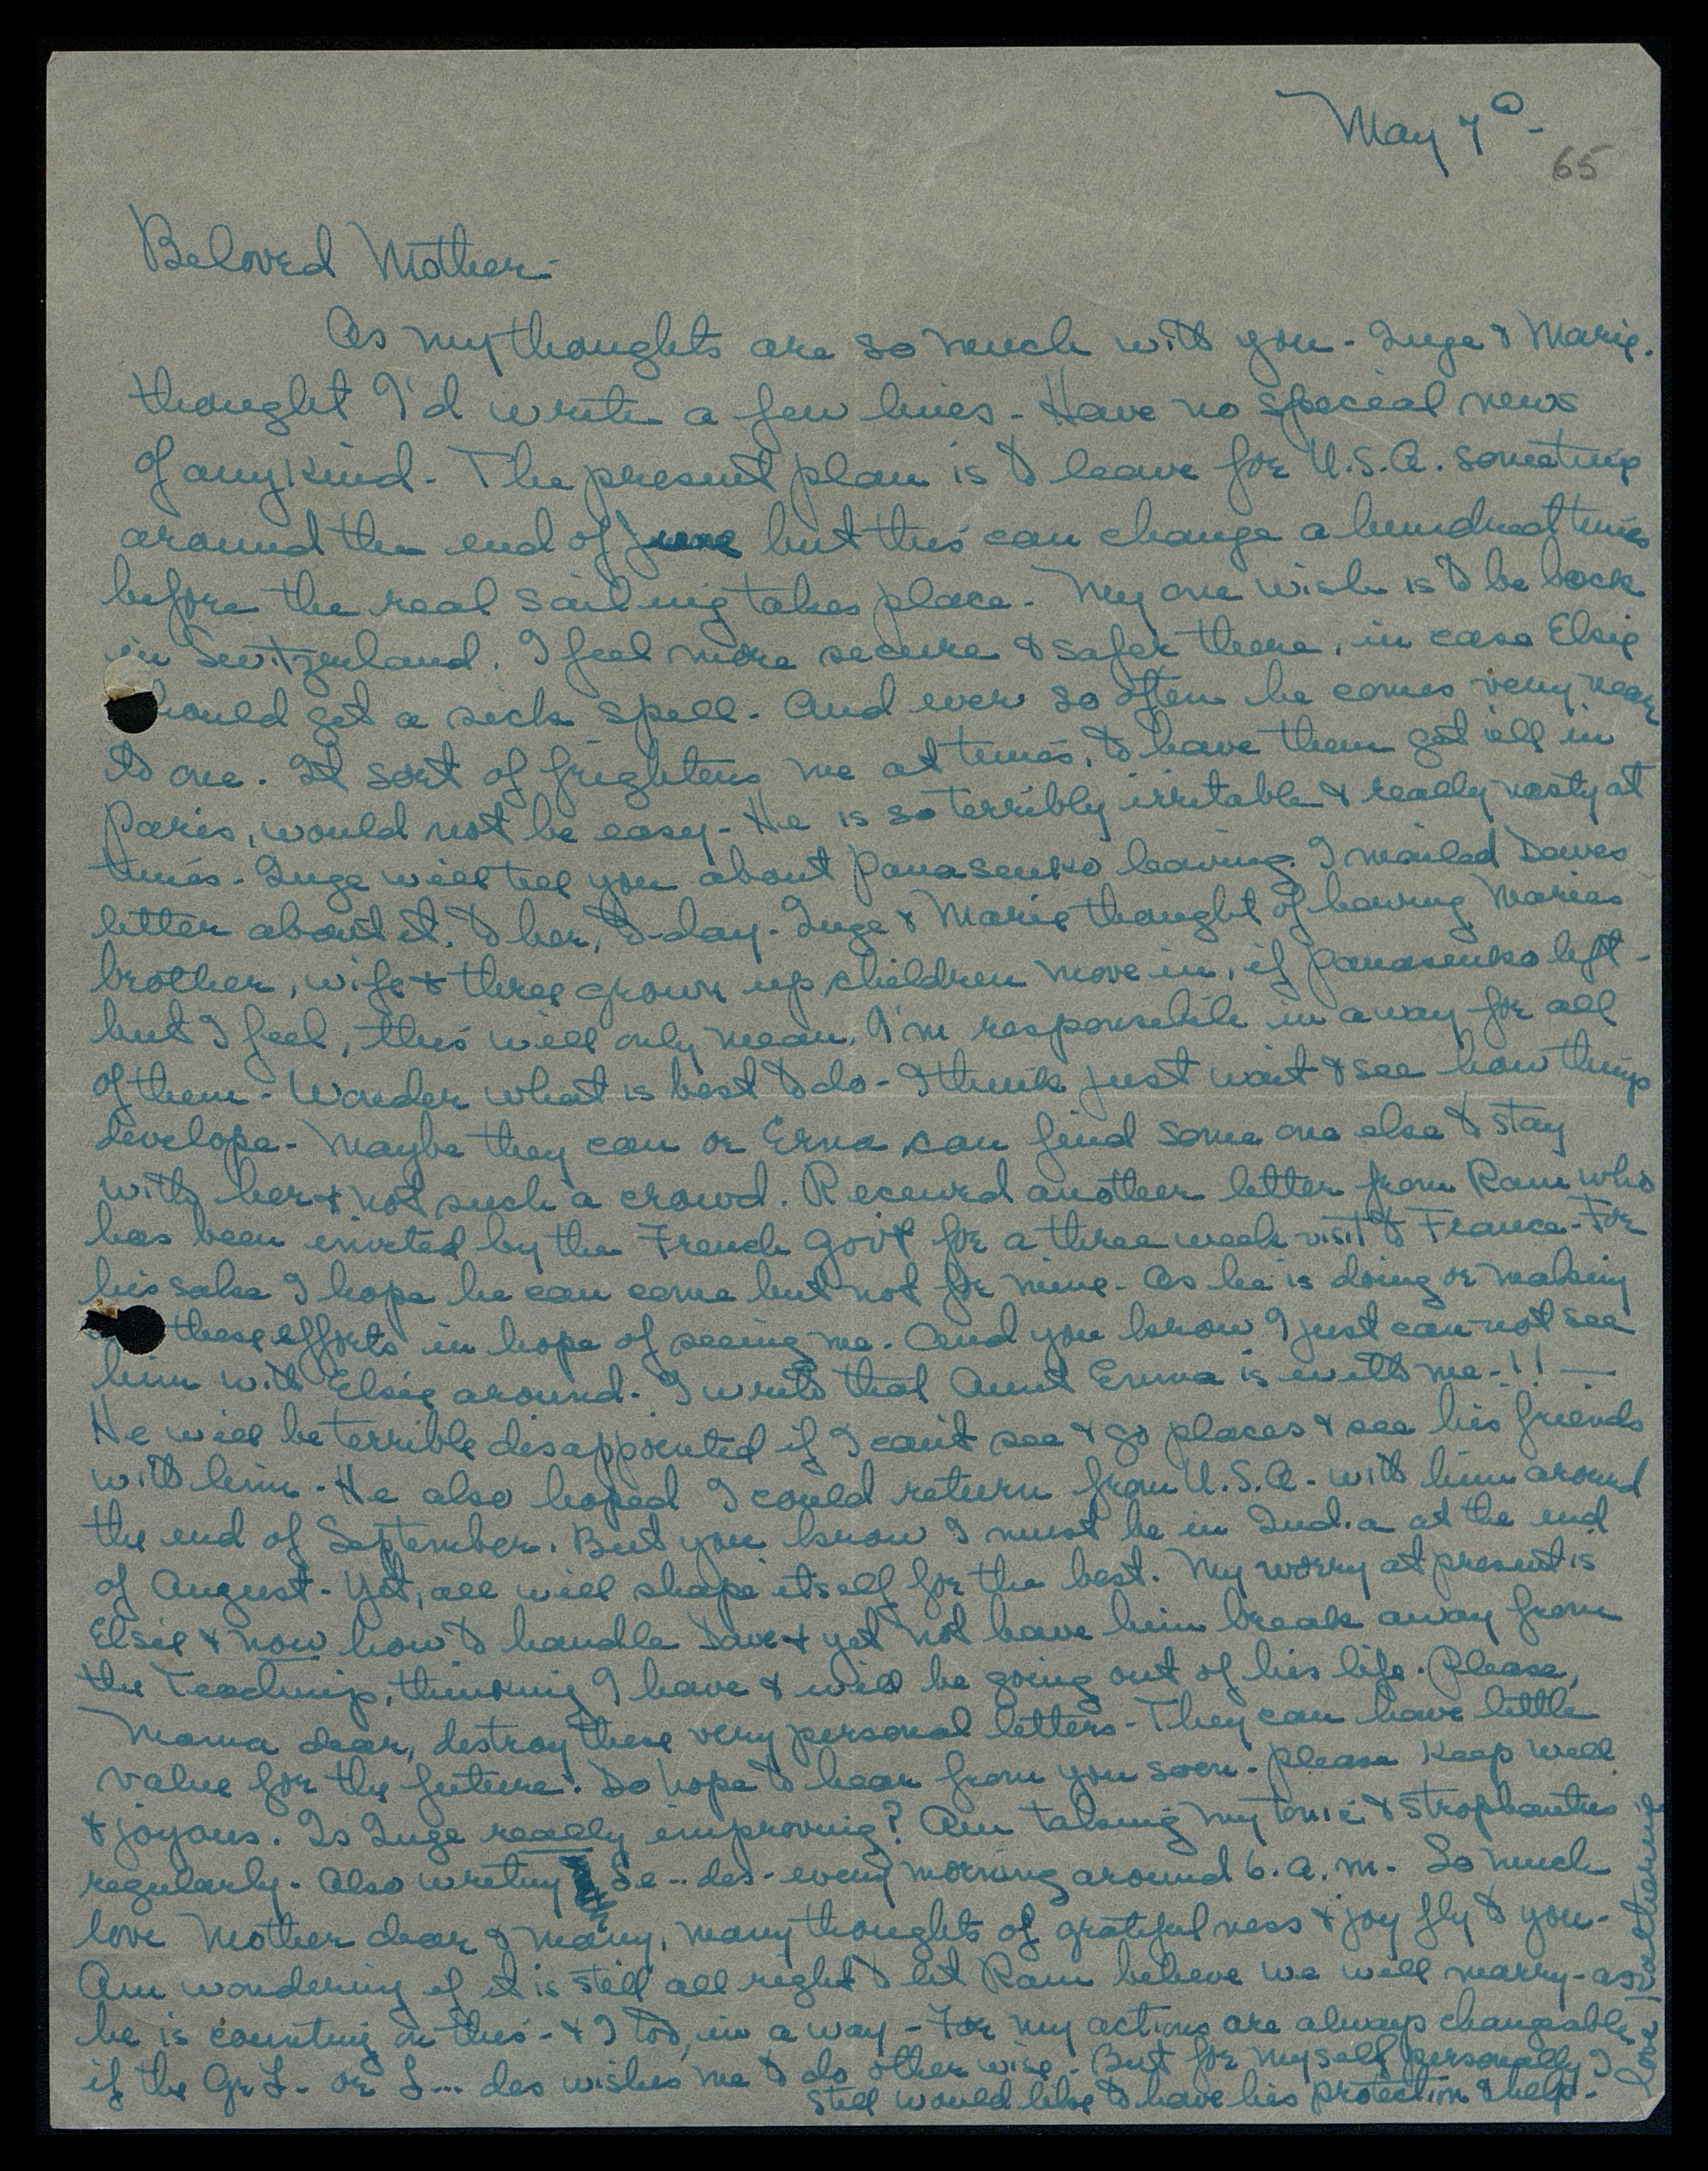 May 7th -
65
Beloved Mother -
As my thoughts are so much with you - Inge & Marie.
thought I'd write a few lines - Have no special news
of any kind - The present plan is to leave for U.S.A. sometime
around the end of June but this can change a hundred times
before the real sailing takes place - My one wish is to be back
in Switzerland. I feel more secure & safer there, in case Elsie
should get a sick spell - And ever so often he comes very near
to one. It sort of frightens me at times, to have them get ill in
Paris, would not be easy - He is so terribly irritable & really nasty at
times - Inge will tell you about Panasenko leaving. I mailed Daves
letter about it, to her, to-day - Inge & Marie thought of having Maries
brother, wife & three grown up children move in, if Panasenko left -
but I feel, this will only mean, I'm responsible in a way for all
of them - Wonder what is best to do - I think just wait & see how things
develope - Maybe they can or Erna can find some one else to stay
with her & not such a crowd. Received another letter from Ram who
has been invited by the French gov't for a three week visit to France - For
his sake I hope he can come but not for mine - As he is doing or making
these efforts in hope of seeing me. And you know I just can not see
him with Elsie around. I wrote that Aunt Emma is with me - !! —
He will be terrible disappointed if I can't see & go places & see his friends
with him - He also hoped I could return from U.S.A. with him around
the end of September. But you know I must be in India at the end
of August - Yet, all will shape itself for the best. My worry at present is
Elsie & now how to handle Dave & yet not have him break away from
the Teachings, thinking I have & will be going out of his life. Please,
Mama dear, destroy these very personal letters - They can have little
value for the future. Do hope to hear from you soon - please keep well
& joyous. Is Inge really improving? Am taking my tonic & strophantus
regularly - Also writing Se - des - every morning around 6. a. m. - So much
love Mother dear & many, many thoughts of gratefulness & joy fly to you -
Am wondering if it is still all right to let Ram believe we will marry - as
he is counting on this - & I too, in a way - For my actions are always changeable
if the Gr L. or S... des wishes me to do other wise - But for myself personally I
still would like to have his protection & help -
love Katherine